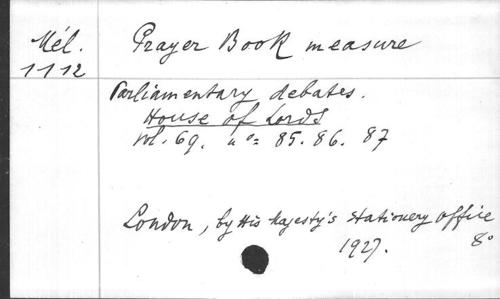 Mél. Prayer Book measure
1112
Parliamentary debates.
House of Lords
vol. 69. nos 85. 86. 87
London, by His Majesty's Stationery office
1927. 8°